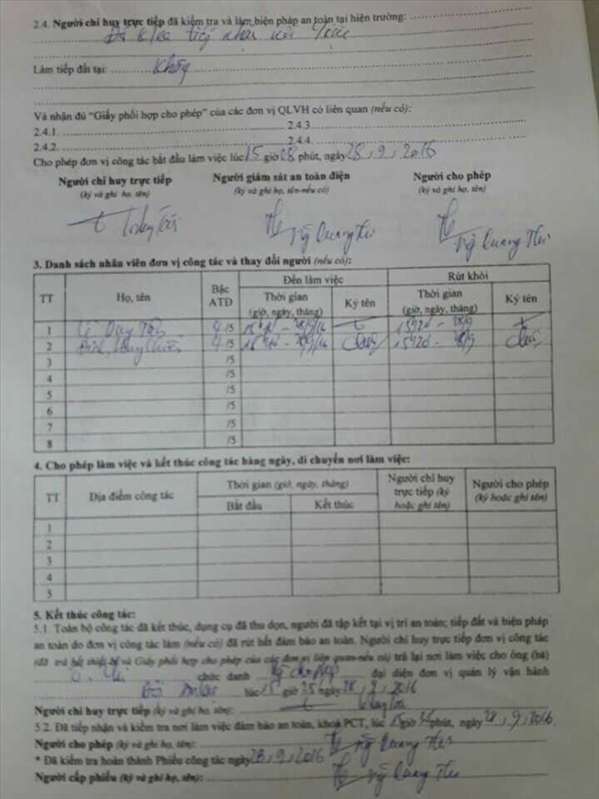 2.4. Người chỉ huy trực tiếp đã kiểm tra và làm biện pháp an toàn tại hiện trường:
Làm tiếp đất tại: Không
Và nhận đủ “Giấy phối hợp cho phép” của các đơn vị QLVH có liên quan (nếu có):
2.4.1. 2.4.3.
2.4.2. 2.4.4.
Cho phép đơn vị công tác bắt đầu làm việc lúc 15 giờ 28 phút, ngày 28 / 9 / 2016
Người chỉ huy trực tiếp Người giám sát an toàn điện Người cho phép
(ký và ghi họ, tên) (ký và ghi họ, tên-nếu có) (ký và ghi họ, tên)
3. Danh sách nhân viên đơn vị công tác và thay đổi người (nếu có):
TT Họ, tên Bậc ATĐ Đến làm việc Rút khỏi
Thời gian (giờ, ngày, tháng) Ký tên Thời gian (giờ, ngày, tháng) Ký tên
1 Lê Duy 4/5
2 4/5
3 /5
4 /5
5 /5
6 /5
7 /5
8 /5
4. Cho phép làm việc và kết thúc công tác hàng ngày, di chuyển nơi làm việc:
TT Địa điểm công tác Thời gian (giờ, ngày, tháng) Người chỉ huy trực tiếp (ký hoặc ghi tên) Người cho phép (ký hoặc ghi tên)
Bắt đầu Kết thúc
1
2
3
4
5
5. Kết thúc công tác:
5.1. Toàn bộ công tác đã kết thúc, dụng cụ đã thu dọn, người đã tập kết tại vị trí an toàn; tiếp đất và biện pháp
an toàn do đơn vị công tác làm (nếu có) đã rút hết đảm bảo an toàn. Người chỉ huy trực tiếp đơn vị công tác
(đã trả hết thiết bị và Giấy phối hợp cho phép của các đơn vị liên quan-nếu có) trả lại nơi làm việc cho ông (bà)
chức danh đại diện đơn vị quản lý vận hành
lúc 15 giờ 25 ngày 28 / 9 / 2016
Người chỉ huy trực tiếp (ký và ghi họ, tên):
5.2. Đã tiếp nhận và kiểm tra nơi làm việc đảm bảo an toàn, khoá PCT, lúc giờ phút, ngày 28 / 9 / 2016
Người cho phép (ký và ghi họ, tên): Quang
* Đã kiểm tra hoàn thành Phiếu công tác ngày 28 / 9 / 2016
Người cấp phiếu (ký và ghi họ, tên): Quang